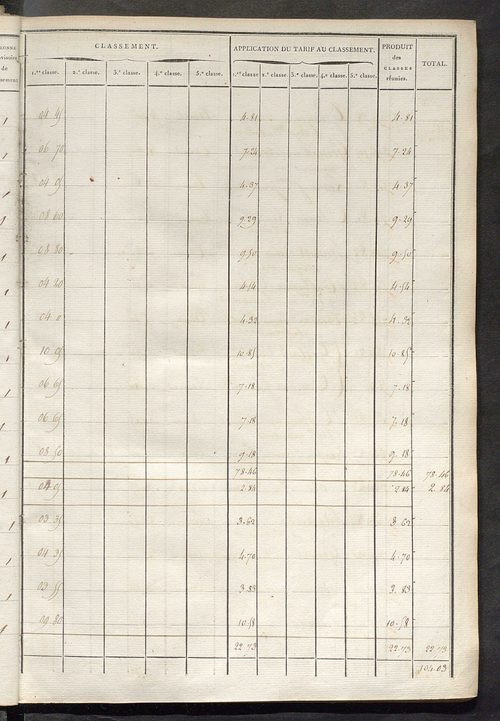 CLASSEMENT. APPLICATION DU TARIF AU CLASSEMENT. PRODUIT des CLASSES réunies. TOTAL.
1.re classe. 2.e classe. 3.e classe. 4.e classe. 5.e classe. 1.re classe 2.e classe. 3.e classe. 4.e classe. 5.e classe.
4.81 4.81
06 70 7.24 7.24
4.37 4.37
08 60 9.29 9.29
08 80 9.50 9.50
04 20 4.54 4.54
04 0 4.32 4.32
10 05 10.85 10.85
06 65 7.18 7.18
06 65 7.18 7.18
08 50 9.18 9.18
78.46 78.46 78.46
2.84 2.84 2.84
03 35 3.62 3.62
04 35 4.70 4.70
03 55 3.83 3.83
09 80 10.58 10.58
22.73 22.73 22.73
104.03